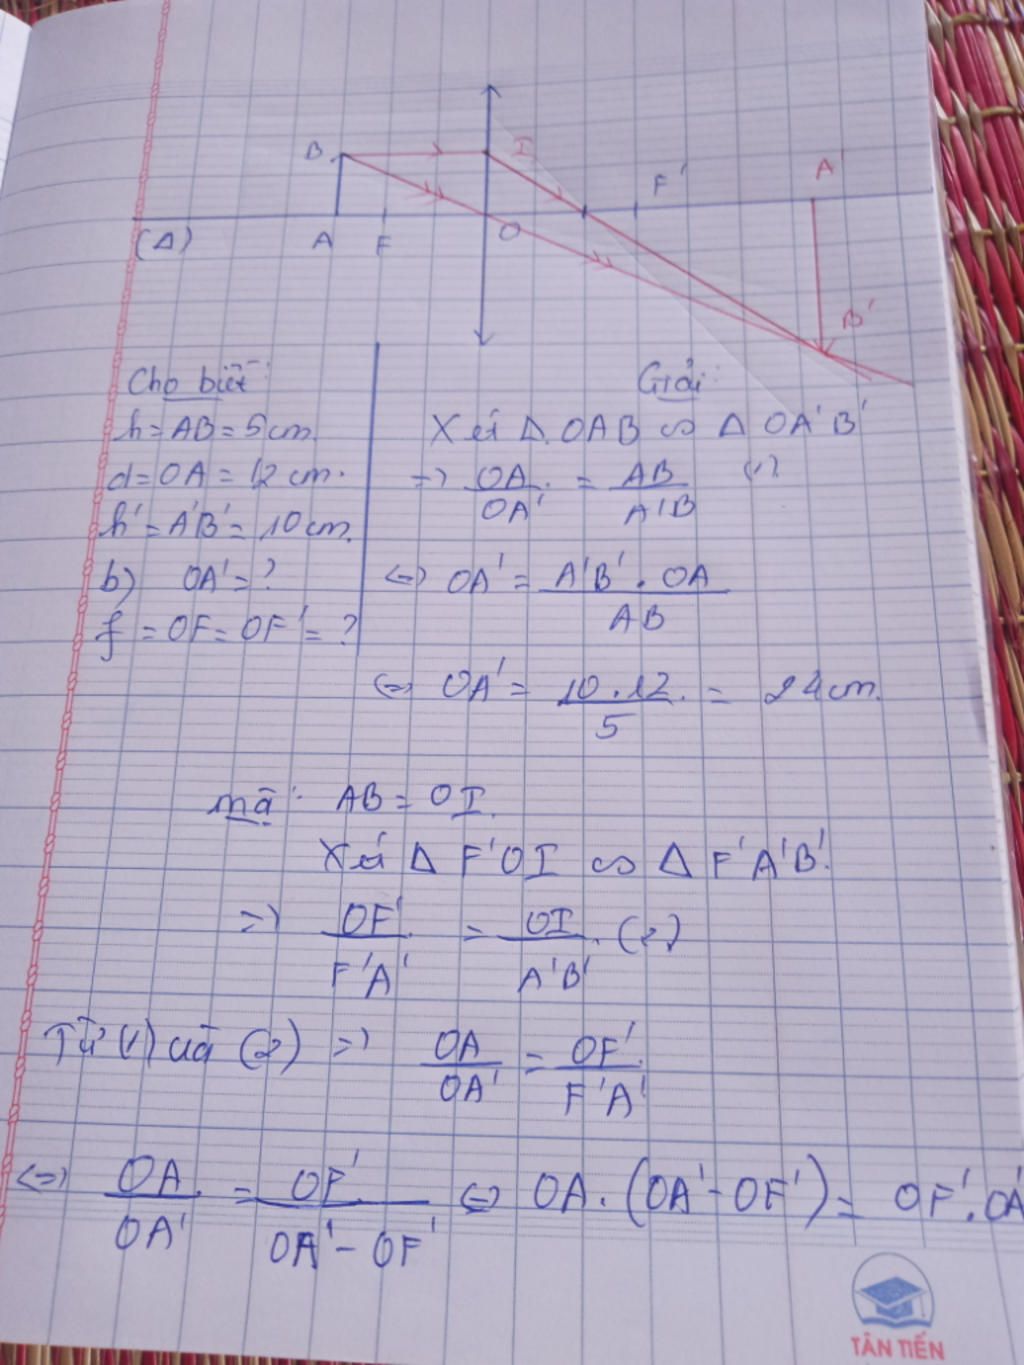 B I F' A'
(Δ) A F O B'
Cho biết:
h = AB = 5cm
d = OA = 12 cm.
h' = A'B' = 10 cm.
b) OA' = ?
f = OF = OF' = ?
Giải:
Xét Δ OAB ∽ Δ OA'B'
=> OA / OA' = AB / A'B (1)
<=> OA' = A'B' . OA / AB
<=> OA' = 10 . 12 / 5 = 24cm.
mà: AB = OI.
Xét Δ F'OI ∽ Δ F'A'B'.
=> OF' / F'A' = OI / A'B' (2)
Từ (1) và (2) => OA / OA' = OF' / F'A'
<=> OA / OA' = OF' / OA' - OF' <=> OA . (OA' - OF') = OF'. OA'
TÂN TIẾN